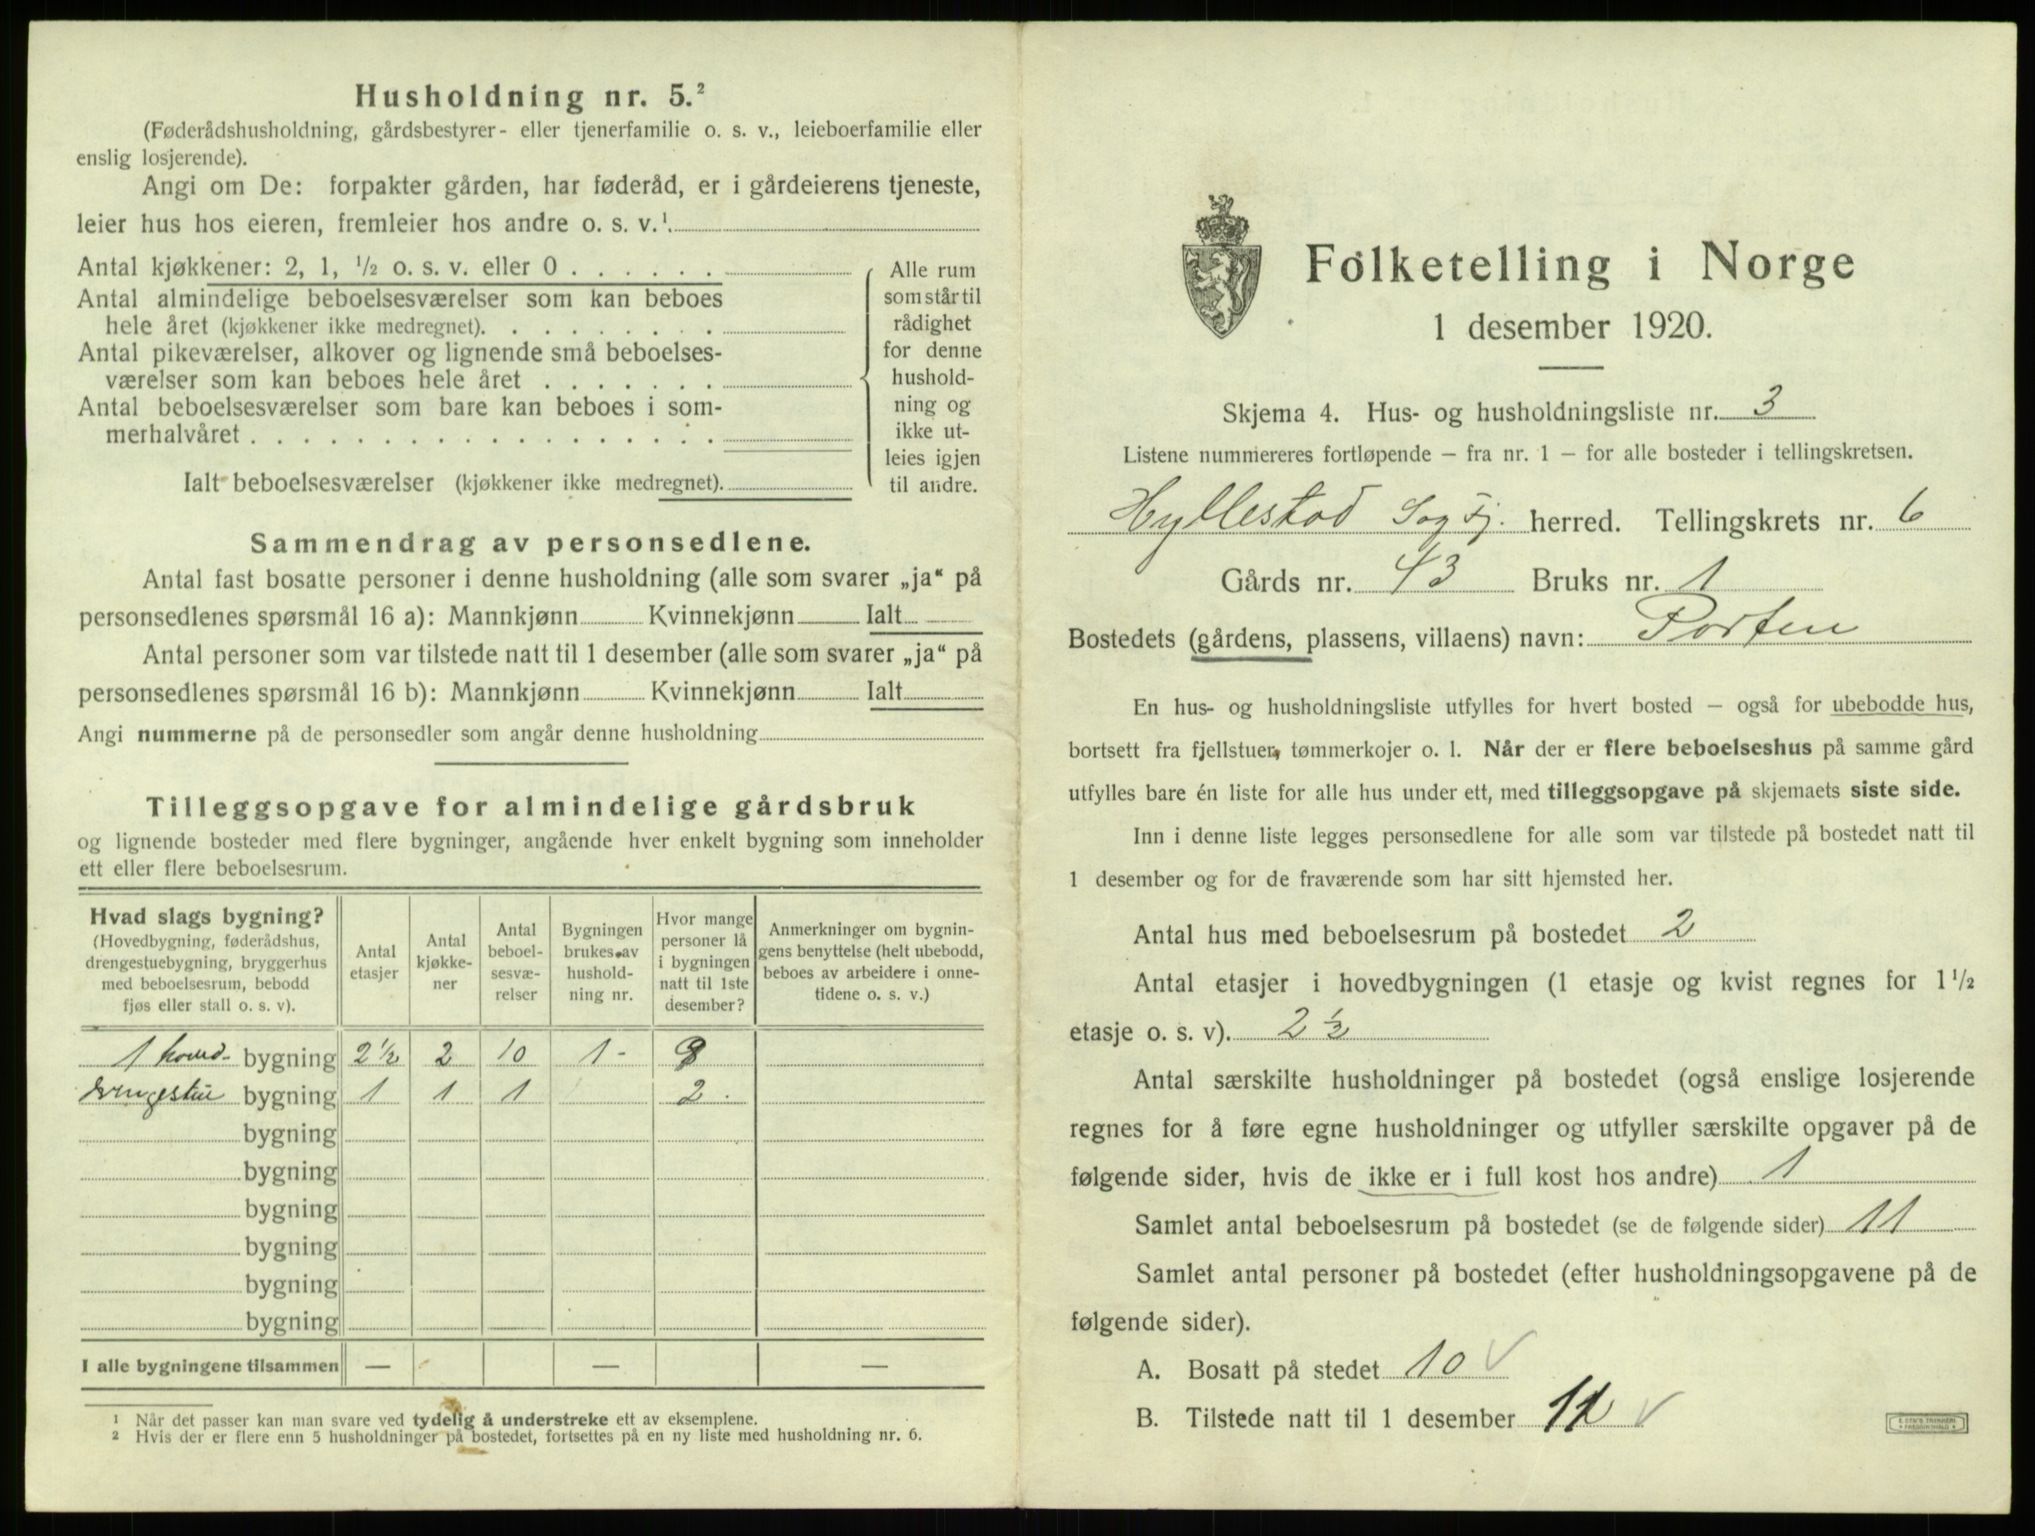 Husholdning nr. 5.²
(Føderådshusholdning, gårdsbestyrer- eller tjenerfamilie o. s. v., leieboerfamilie eller
enslig losjerende).
Angi om De: forpakter gården, har føderåd, er i gårdeierens tjeneste,
leier hus hos eieren, fremleier hos andre o. s. v.¹.
Antal kjøkkener: 2, 1, ½ o. s. v. eller 0
Antal almindelige beboelsesværelser som kan beboes
hele året (kjøkkener ikke medregnet).
Antal pikeværelser, alkover og lignende små beboelses-
værelser som kan beboes hele året
Antal beboelsesværelser som bare kan beboes i som-
merhalvåret
Ialt beboelsesværelser (kjøkkener ikke medregnet).
Alle rum
som står til
rådighet
for denne
hushold-
ning og
ikke ut-
leies igjen
til andre.
Sammendrag av personsedlene.
Antal fast bosatte personer i denne husholdning (alle som svarer „ja“ på
personsedlenes spørsmål 16 a): Mannkjønn Kvinnekjønn Ialt
Antal personer som var tilstede natt til 1 desember (alle som svarer „ja“ på
personsedlenes spørsmål 16 b): Mannkjønn Kvinnekjønn Ialt
Angi nummerne på de personsedler som angår denne husholdning
Tilleggsopgave for almindelige gårdsbruk
og lignende bosteder med flere bygninger, angående hver enkelt bygning som inneholder
ett eller flere beboelsesrum.
Hvad slags bygning?
(Hovedbygning, føderådshus,
drengestuebygning, bryggerhus
med beboelsesrum, bebodd
fjøs eller stall o. s. v).
Antal
etasjer
Antal
kjøkke-
ner
Antal
beboel-
sesvæ-
relser
Bygningen
brukes av
hushold-
ning nr.
Hvor mange
personer lå
i bygningen
natt til 1ste
desember?
Anmerkninger om bygnin-
gens benyttelse (helt ubebodd,
beboes av arbeidere i onne-
tidene o. s. v.)
1 hoved- bygning 2½ 2 10 1- 9
drengestue bygning 1 1 1 2
bygning
bygning
bygning
bygning
bygning
bygning
I alle bygningene tilsammen — — —
¹ Når det passer kan man svare ved tydelig å understreke ett av eksemplene.
² Hvis der er flere enn 5 husholdninger på bostedet, fortsettes på en ny liste med husholdning nr. 6.
Folketelling i Norge
1 desember 1920.
Skjema 4. Hus- og husholdningsliste nr. 3
Listene nummereres fortløpende — fra nr. 1 — for alle bosteder i tellingskretsen.
Hyllestad Sog Fj. herred. Tellingskrets nr. 6
Gårds nr. 43 Bruks nr. 1
Bostedets (gårdens, plassens, villaens) navn: Porten
En hus- og husholdningsliste utfylles for hvert bosted — også for ubebodde hus,
bortsett fra fjellstuer, tømmerkojer o. l. Når der er flere beboelseshus på samme gård
utfylles bare én liste for alle hus under ett, med tilleggsopgave på skjemaets siste side.
Inn i denne liste legges personsedlene for alle som var tilstede på bostedet natt til
1 desember og for de fraværende som har sitt hjemsted her.
Antal hus med beboelsesrum på bostedet 2
Antal etasjer i hovedbygningen (1 etasje og kvist regnes for 1½
etasje o. s. v). 2½
Antal særskilte husholdninger på bostedet (også enslige losjerende
regnes for å føre egne husholdninger og utfyller særskilte opgaver på de
følgende sider, hvis de ikke er i full kost hos andre) 1
Samlet antal beboelsesrum på bostedet (se de følgende sider) 11
Samlet antal personer på bostedet (efter husholdningsopgavene på de
følgende sider).
A. Bosatt på stedet 10
B. Tilstede natt til 1 desember 11